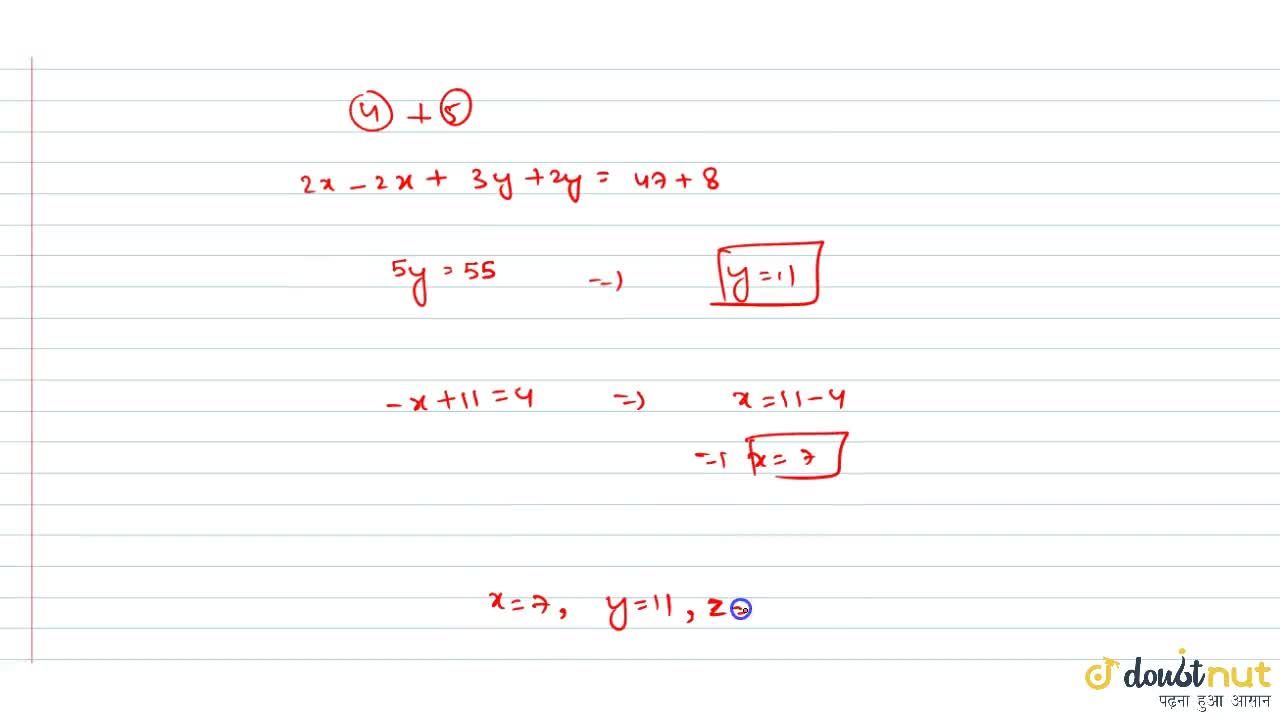 ④ + ⑤
2x - 2x + 3y + 2y = 47 + 8
5y = 55 => y = 11
-x + 11 = 4 => x = 11 - 4
=> x = 7
x = 7, y = 11, z =
doubtnut
पढ़ना हुआ आसान